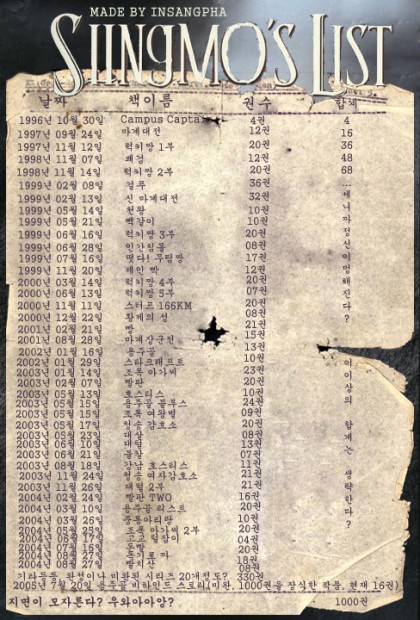 MADE BY INSANGPHA
SIINGMO'S LIST
날짜 책이름 권수 합계
1996년 10월 30일 Campus Captain 4권 4
1997년 09월 24일 마계대전 12권 16
1997년 11월 12일 럭키짱 1부 20권 36
1998년 11월 07일 쾌검 12권 48
1998년 11월 14일 럭키짱 2부 20권 68
1999년 02월 08일 36권 ...
1999년 02월 13일 신 마계대전 32권
1999년 05월 14일 천왕 10권
1999년 05월 21일 10권
1999년 06월 16일 럭키짱 3부 20권
1999년 06월 28일 08권
1999년 07월 16일 떳다! 무림짱 17권
1999년 11월 20일 12권
2000년 03월 14일 럭키짱 4부 20권
2000년 06월 13일 럭키짱 5부 07권
2000년 11월 11일 166KM 20권
2000년 12월 22일 황제의 성 08권
2001년 02월 21일 짱 21권
2001년 08월 28일 마계장군전 15권
2002년 01월 16일 용주골 13권
2002년 01월 29일 스타크래프트 10권
2003년 01월 14일 조폭 아가씨 23권
2003년 02월 07일 빨판 20권
2003년 05월 13일 호스티스 10권
2003년 05월 15일 용주골 블루스 24권
2003년 05월 15일 조폭 여왕벌 09권
2003년 05월 17일 청송 감호소 20권
2003년 05월 23일 대상 08권
2003년 06월 10일 대털 13권
2003년 06월 21일 불찰 07권
2003년 08월 18일 강남 호스티스 11권
2003년 11월 24일 청송 여자감호소 21권
2003년 11월 26일 대털 2부 21권
2004년 02월 24일 빨판 TWO 16권
2004년 03월 10일 용주골 리스트 20권
2004년 03월 26일 10권
2004년 05월 25일 조폭 아가씨 2부 20권
2004년 06월 17일 04권
2004년 07월 16일 도벽 20권
2004년 08월 27일 18권
2004년 08월 27일 빨치산 08권
세니까 정신이 멍해진다?
이이상의 합계는 생략한다?
기타등등 완성이나 미완된 시리즈 20개정도? 330권
2005년 7월 20일 용주골 비하인드 스토리(미완, 1000권을 장식한 작품, 현재 16권)
지면이 모자른다? 우와아아앙? 1000권